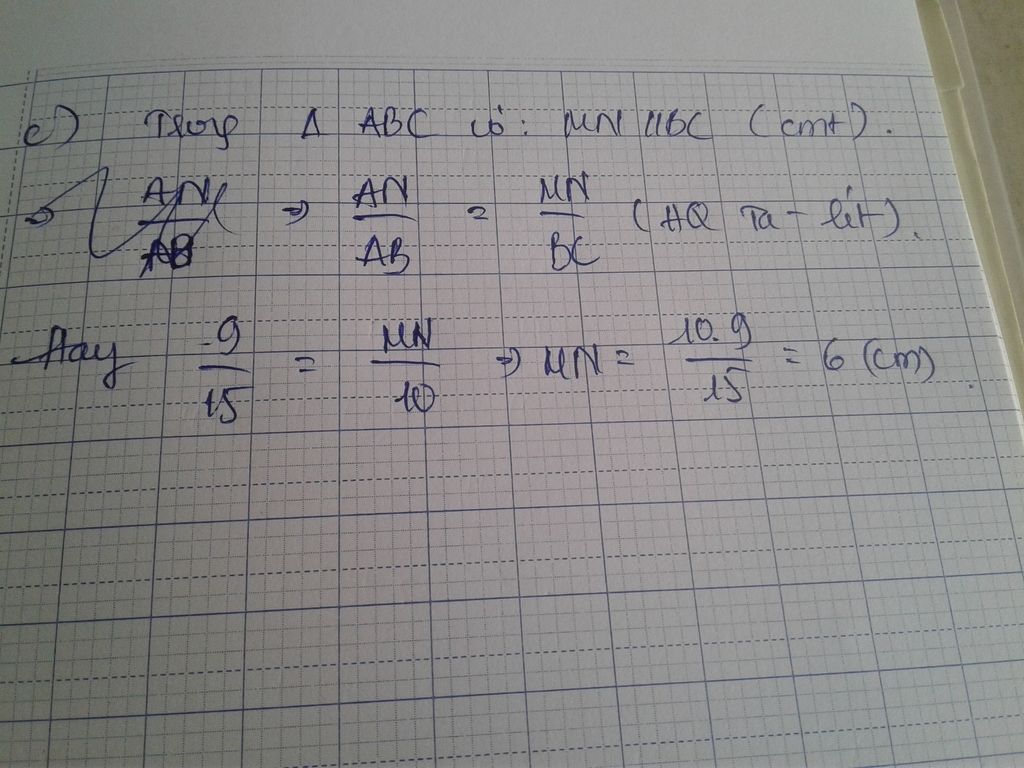 c) Trong Δ ABC có: MN // BC (cmt).
⇒ AN/AB ⇒ AN/AB = MN/BC (HQ Ta-lét).
Hay 9/15 = MN/10 ⇒ MN = 10.9/15 = 6 (cm).